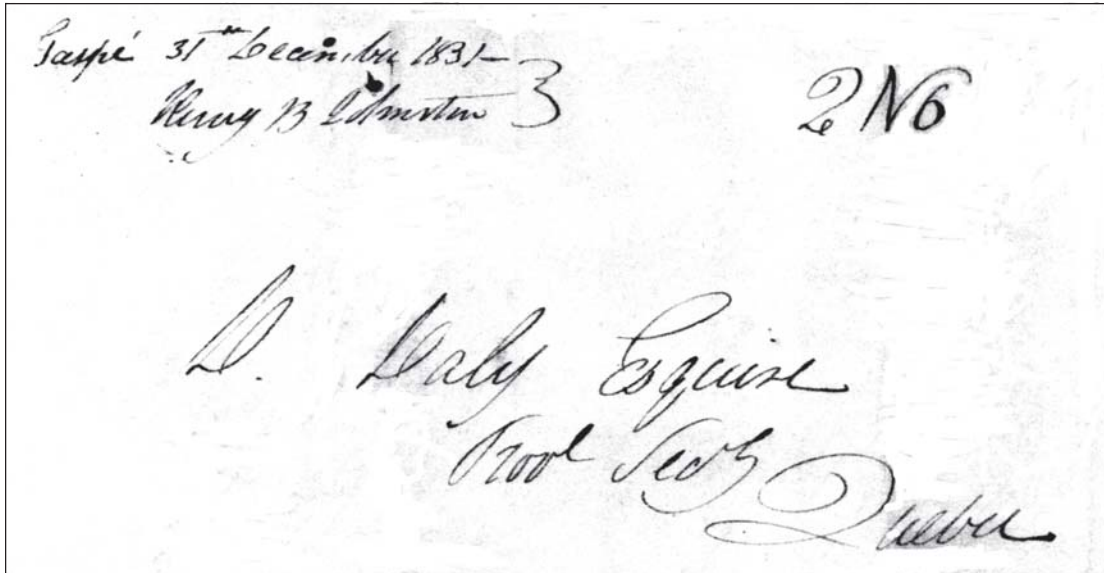 Gaspé 31st December 1831-
Henry B Johnston
2 N6
D. Daly Esquire
Provl Secy
Quebec